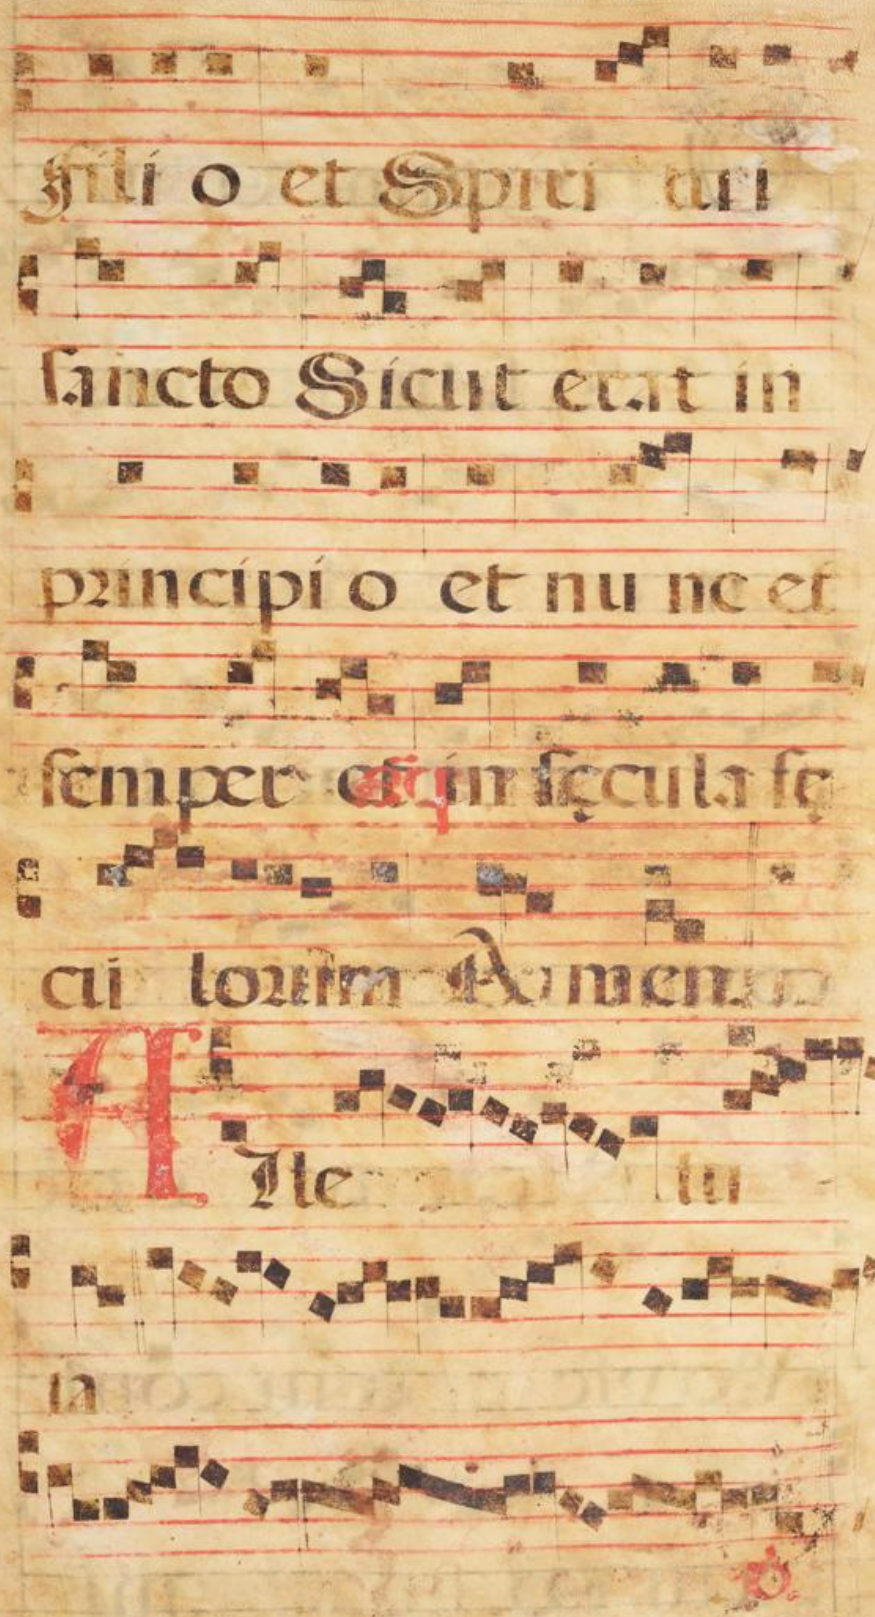 Fili o et Spiri tui
sancto Sicut erat in
principi o et nu nc et
semper et in sęcula sę
cu lorum Amen.
Alle lu
ia